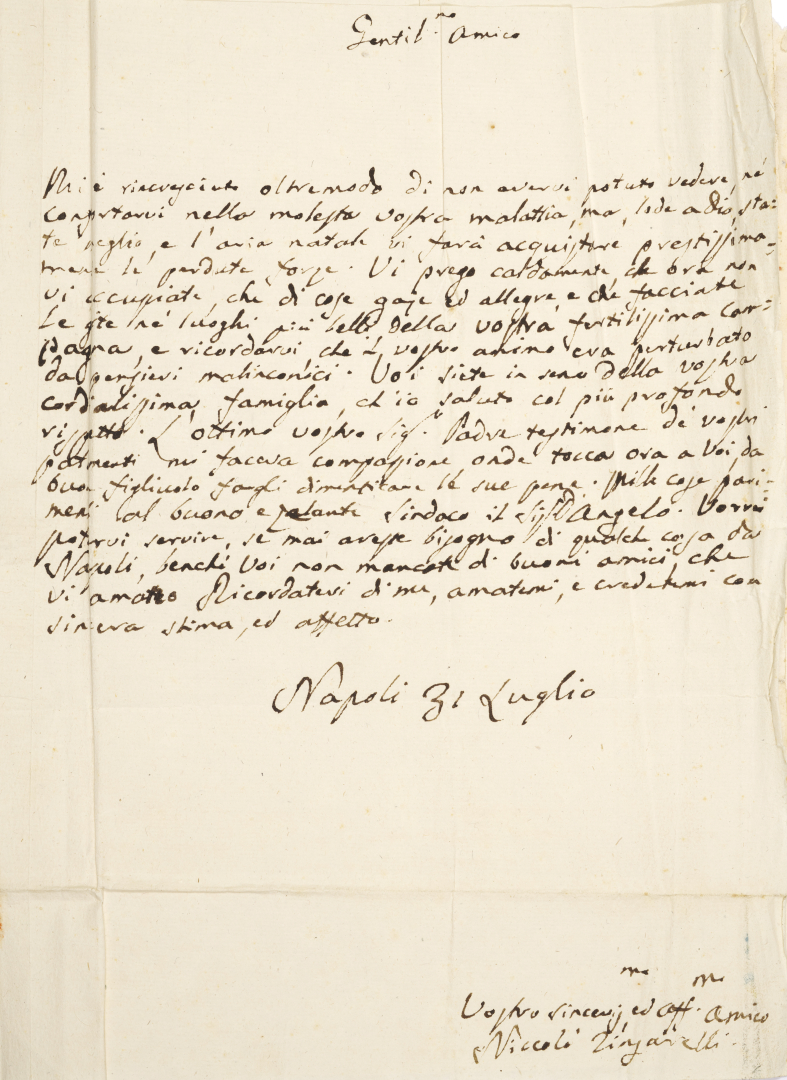 Gentil.mo Amico
Mi è rincresciuto oltremodo di non avervi potuto vedere, nè
confortarvi nella molesta vostra malattia, ma, lode a dio, sta=
te meglio, e l'aria natale vi farà acquistare prestissima=
mente le perdute forze. Vi prego caldamente, che ora non
vi occupiate, che di cose gaje ed allegre, e che facciate
le gite ne' luoghi più belli della vostra fertilissima cam=
pagna, e ricordarvi, che il vostro animo era perturbato
da pensieri malinconici. Voi siete in seno della vostra
cordialissima famiglia, ch'io saluto col più profondo
rispetto. L'ottimo vostro Sig.r Padre testimone de' vostri
patimenti mi faceva compassione onde tocca ora a Voi, da
buon figliuolo fargli dimenticare le sue pene. Mille cose pari=
menti al buono e zelante Sindaco il Sig.r D'Angelo. Vorrei
potervi servire, se mai aveste bisogno di qualche cosa da
Napoli, benchè Voi non mancate di buoni amici, che
vi amano Ricordatevi di me, amatemi, e credetemi con
sincera stima, ed affetto.
Napoli 31 Luglio
Vostro sinceris.mo ed aff.mo Amico
Niccolò Zingarelli.